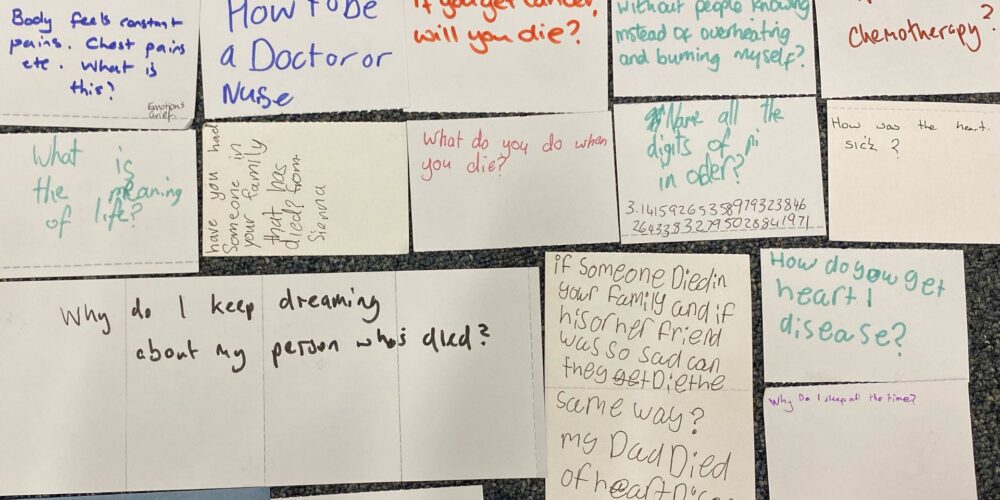 Body feels constant
pains. Chest pains
etc. What is
this?
Emotions
Grief.
How to be
a Doctor or
Nurse
if you get cancer,
will you die?
without people knowing
instead of overheating
and burning myself?
chemotherapy?
What is
the meaning
of life?
have you had
Someone in
your family
that has
died? from
Sienna
What do you do when
you die?
Name all the
digits of pi
in oder?
3.14159265358979323846
2643383279502884 1971
How was the heart
sick?
Why do I keep dreaming
about my person who's died?
if Someone Died in
your family and if
his or her friend
was so sad can
they get Die the
same way?
my Dad Died
of heart
How do you get
heart
disease?
Why Do I sleep all the time?